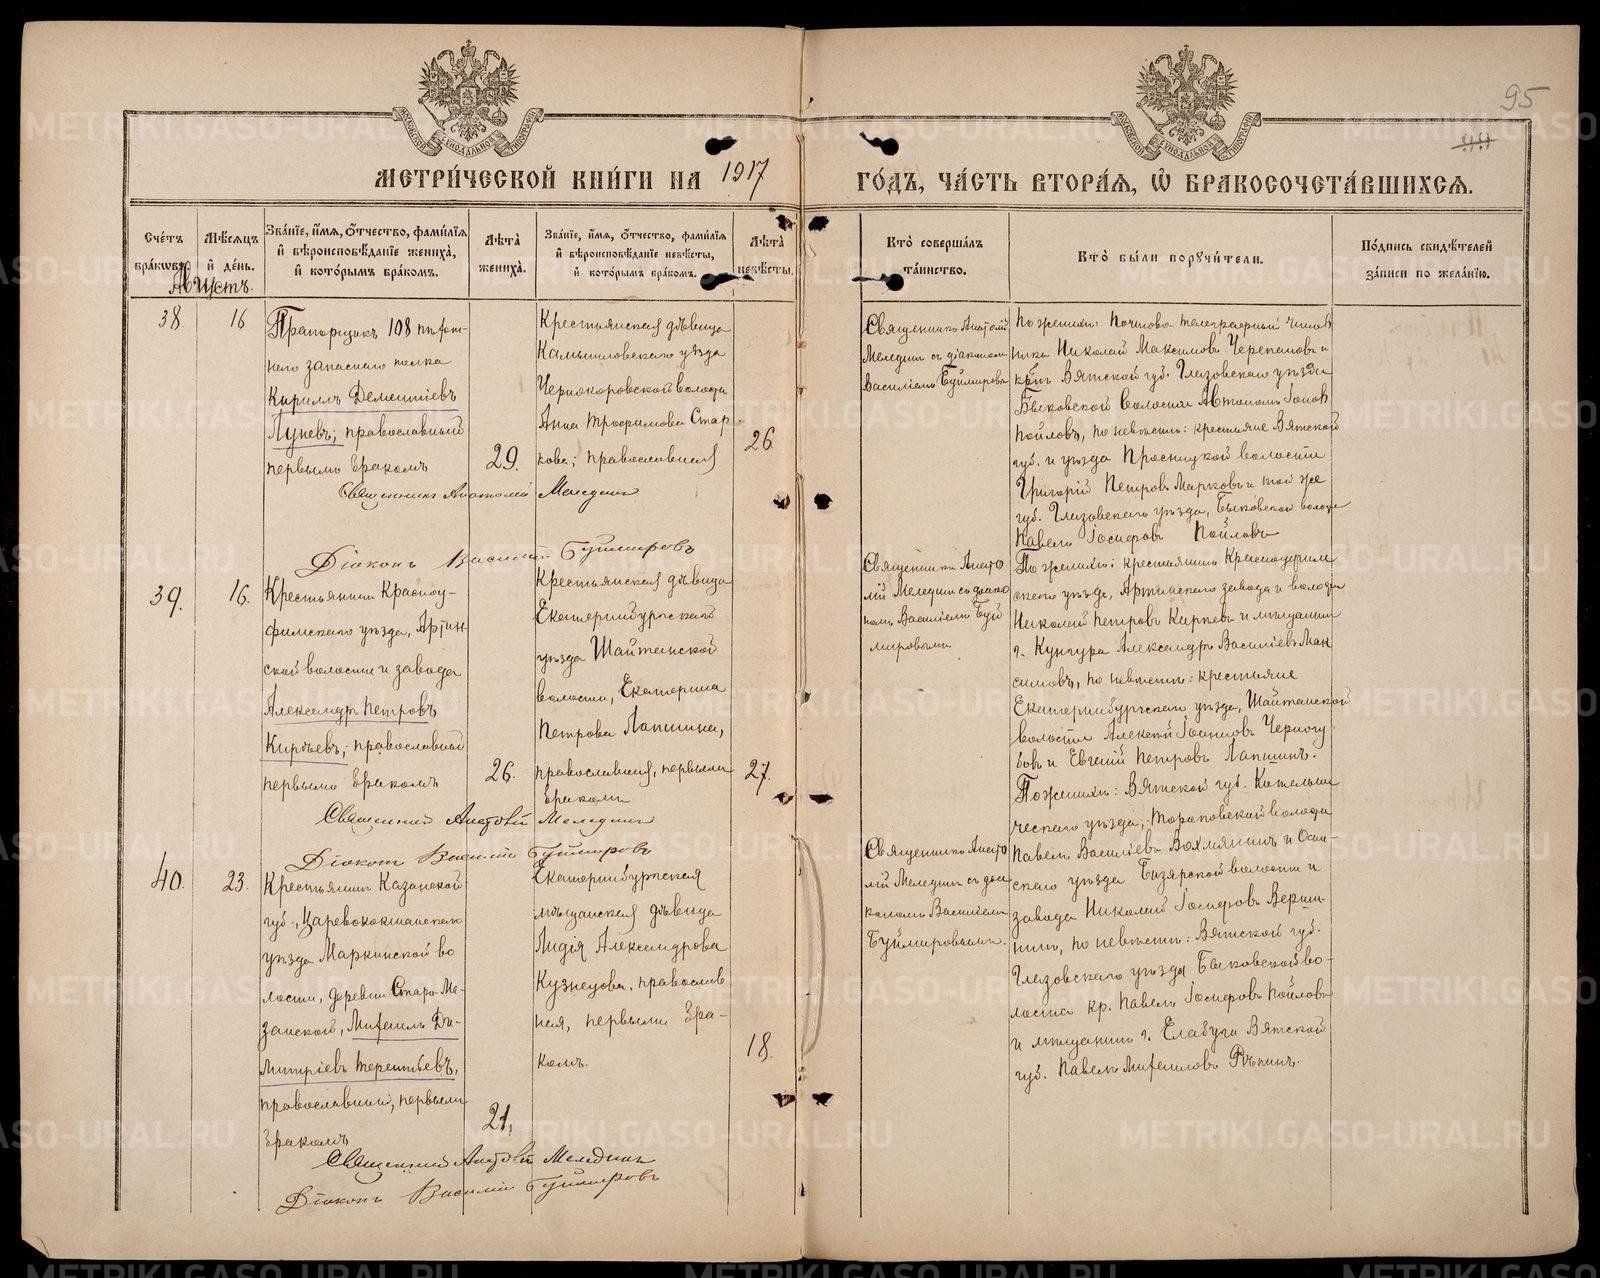 95
99
МЕТРИ́ЧЕСКОЙ КНИ́ГИ НА 1917 ГО́ДЪ, ЧА́СТЬ ВТОРА́Я, Ѡ БРАКОСОЧЕТА́ВШИХСЯ.
Сче́тъ бра́кѡвъ.
Мѣ́сяцъ и де́нь.
Зва́нїе, и҆́мѧ, ѻ҆́тчество, фами́лїѧ и҆ вѣроисповѣ́данїе жениха̀, и҆ кото́рымъ бра́комъ.
Лѣ́та жениха̀.
Зва́нїе, и҆́мѧ, ѻ҆́тчество, фами́лїѧ и҆ вѣроисповѣ́данїе невѣ́сты, и҆ кото́рымъ бра́комъ.
Лѣ́та невѣ́сты.
Кто̀ соверша́лъ та́инство.
Кто̀ бы́ли порꙋчи́тели.
По́дпись свидѣ́телей за́писи по жела́нїю.
Августъ.
38.
16
Прапорщикъ 108 пѣхот-
наго запаснаго полка
Кириллъ Дементіевъ
Луневъ, православный
первымъ бракомъ
29.
Крестьянская дѣвица
Камышловскаго уѣзда
Черемховской волости
Анна Трофимова Стар
кова; православная
26
Священникъ Анатолій Меледин
Діаконъ Василій Буймировъ
Священникъ Анатолій
Меледин съ діакономъ
Василіемъ Буймировы
По женихѣ: Почтово телеграфный чинов
никъ Николай Максимовъ Черепановъ и
крнъ Вятской губ. Глазовскаго уѣзда
Быковской волости Автоном Іосиф
Пойловъ, по невѣстѣ: крестьяне Вятской
губ. и уѣзда Просницкой волости
Григорій Петровъ Марковъ и той же
губ. Глазовскаго уѣзда, Быковской волост
Павелъ Іосифовъ Пойловъ
39.
16.
Крестьянинъ Красноу-
фимскаго уѣзда, Артин-
ской волости и завода
Александръ Петровъ
Кирпевъ, православный
первымъ бракомъ
26.
Крестьянская дѣвица
Екатеринбургскаго
уѣзда Шайтанской
волости, Екатерина
Петрова Лапшина,
православная, первымъ
бракомъ
27.
Священникъ Анатолій Меледин
Діаконъ Василій Буймировъ
Священникъ Анато
лій Меледин съ діако
номъ Василіемъ Буй
мировымъ
По женихѣ: крестьянинъ Красноуфим
скаго уѣзда, Артинскаго завода и волости
Николай Петровъ Кирпевъ и мѣщанинъ
г. Кунгура Александръ Василіевъ Мак
симовъ, по невѣстѣ: крестьяне
Екатеринбургскаго уѣзда, Шайтанской
волости Алексѣй Іоанновъ Черногу
бовъ и Евгеній Петровъ Лапшинъ.
40.
23.
Крестьянинъ Казанской
губ., Царевококшайскаго
уѣзда Маркинской во
лости, деревни Старо-Ма-
занской, Михаилъ Ди-
митріевъ Терентьевъ,
православный, первымъ
бракомъ
21.
Екатеринбургская
мѣщанская дѣвица
Лидія Александрова
Кузнецова, православ
ная, первымъ бра-
комъ.
18.
Священникъ Анатолій Меледин
Діаконъ Василій Буймировъ
Священникъ Анато
лій Меледин съ діа
кономъ Василіемъ
Буймировымъ.
По женихѣ: Вятской губ. Котельни
ческаго уѣзда, Тороповской волости
Павелъ Василіевъ Вохмянинъ и Осин-
скаго уѣзда Бизярской волости и
завода Николай Іосифовъ Верши-
нинъ, по невѣстѣ: Вятской губ.
Глазовскаго уѣзда Быковской во-
лости кр. Павелъ Іосифовъ Пойловъ
и мѣщанинъ г. Елабуги Вятской
губ. Павелъ Михаиловъ Рѣпинъ.
METRIKI.GASO-URAL.RU